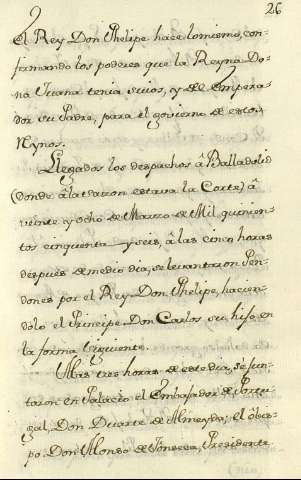 26
El Rey Don Phelipe hace lo mismo, con-
firmando los poderes que la Reyna Do-
na Juana tenia suios, y de el Empera-
dor su Padre, para el govierno de estos
Reynos.
Llegados los despachos â Balladolid
(donde â la sazon estava la Corte) â
veinte y ocho de Marzo de Mil quinien-
tos cinquenta y seis, â las cinco horas
despues de medio dia, se levantaron Pen-
dones por el Rey Don Phelipe, hacien-
dolo el Principe Don Carlos su hijo, en
la forma siguiente.
â las tres horas de este dia, se jun-
taron en Palacio el Embajador de Portu-
gal, Don Duarte de Almeyda; el óbis-
po Don Alonso de Fonseca, Presidente